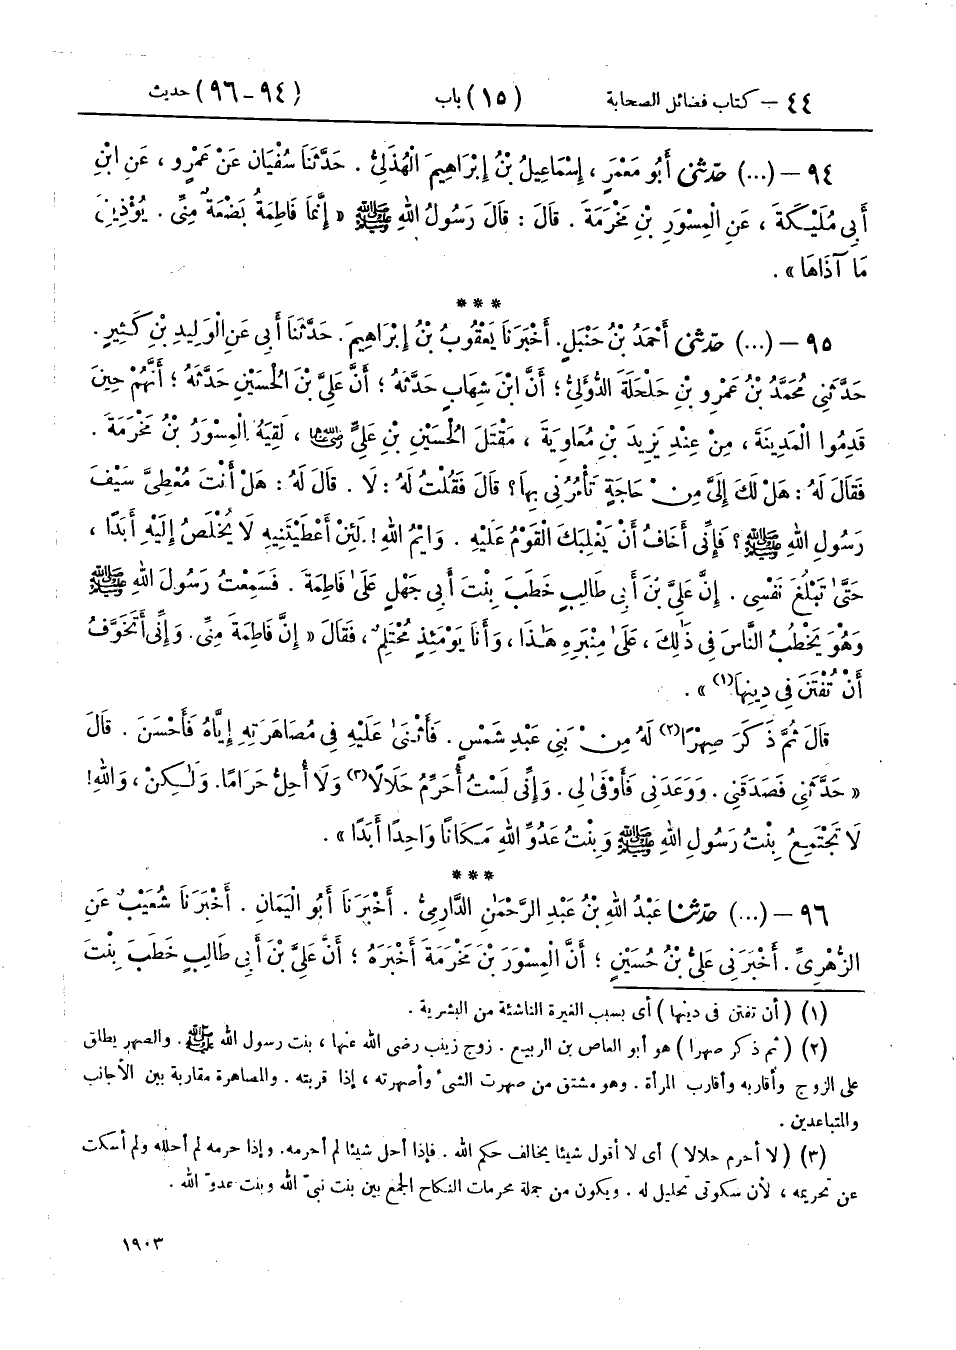 ٤٤ – كتاب فضائل الصحابة (١٥) باب (٩٤-٩٦) حديث
٩٤ – (...) حَدَّثَنِي أَبُو مَعْمَرٍ ، إِسْمَاعِيلُ بْنُ إِبْرَاهِيمَ الْهُذَلِيُّ . حَدَّثَنَا سُفْيَانُ عَنْ عَمْرٍو ، عَنِ ابْنِ
أَبِي مُلَيْكَةَ ، عَنِ الْمِسْوَرِ بْنِ مَخْرَمَةَ . قَالَ : قَالَ رَسُولُ اللهِ ﷺ « إِنَّمَا فَاطِمَةُ بَضْعَةٌ مِنِّي . يُؤْذِينِي
مَا آذَاهَا » .
***
٩٥ – (...) حَدَّثَنِي أَحْمَدُ بْنُ حَنْبَلٍ. أَخْبَرَنَا يَعْقُوبُ بْنُ إِبْرَاهِيمَ. حَدَّثَنَا أَبِي عَنِ الْوَلِيدِ بْنِ كَثِيرٍ .
حَدَّثَنِي مُحَمَّدُ بْنُ عَمْرِو بْنِ حَلْحَلَةَ الدُّؤَلِيُّ ؛ أَنَّ ابْنَ شِهَابٍ حَدَّثَهُ ؛ أَنَّ عَلِيَّ بْنَ الْحُسَيْنِ حَدَّثَهُ ؛ أَنَّهُمْ حِينَ
قَدِمُوا الْمَدِينَةَ ، مِنْ عِنْدِ يَزِيدَ بْنِ مُعَاوِيَةَ ، مَقْتَلَ الْحُسَيْنِ بْنِ عَلِيٍّ رضي الله عنهما ، لَقِيَهُ الْمِسْوَرُ بْنُ مَخْرَمَةَ .
فَقَالَ لَهُ : هَلْ لَكَ إِلَيَّ مِنْ حَاجَةٍ تَأْمُرُنِي بِهَا؟ قَالَ فَقُلْتُ لَهُ : لَا . قَالَ لَهُ : هَلْ أَنْتَ مُعْطِيَّ سَيْفَ
رَسُولِ اللهِ ﷺ ؟ فَإِنِّي أَخَافُ أَنْ يَغْلِبَكَ الْقَوْمُ عَلَيْهِ . وَايْمُ اللهِ ! لَئِنْ أَعْطَيْتَنِيهِ لَا يُخْلَصُ إِلَيْهِ أَبَدًا ،
حَتَّىٰ تَبْلُغَ نَفْسِي . إِنَّ عَلِيَّ بْنَ أَبِي طَالِبٍ خَطَبَ بِنْتَ أَبِي جَهْلٍ عَلَىٰ فَاطِمَةَ . فَسَمِعْتُ رَسُولَ اللهِ ﷺ
وَهُوَ يَخْطُبُ النَّاسَ فِي ذَٰلِكَ ، عَلَىٰ مِنْبَرِهِ هَٰذَا ، وَأَنَا يَوْمَئِذٍ مُحْتَلِمٌ ، فَقَالَ « إِنَّ فَاطِمَةَ مِنِّي. وَإِنِّي أَتَخَوَّفُ
أَنْ تُفْتَنَ فِي دِينِهَا(١) » .
قَالَ ثُمَّ ذَكَرَ صِهْرًا(٢) لَهُ مِنْ بَنِي عَبْدِ شَمْسٍ . فَأَثْنَىٰ عَلَيْهِ فِي مُصَاهَرَتِهِ إِيَّاهُ فَأَحْسَنَ . قَالَ
« حَدَّثَنِي فَصَدَقَنِي . وَوَعَدَنِي فَأَوْفَىٰ لِي . وَإِنِّي لَسْتُ أُحَرِّمُ حَلَالًا(٣) وَلَا أُحِلُّ حَرَامًا. وَلَٰكِنْ ، وَاللهِ!
لَا تَجْتَمِعُ بِنْتُ رَسُولِ اللهِ ﷺ وَبِنْتُ عَدُوِّ اللهِ مَكَانًا وَاحِدًا أَبَدًا » .
***
٩٦ – (...) حَدَّثَنَا عَبْدُ اللهِ بْنُ عَبْدِ الرَّحْمَٰنِ الدَّارِمِيُّ . أَخْبَرَنَا أَبُو الْيَمَانِ . أَخْبَرَنَا شُعَيْبٌ عَنِ
الزُّهْرِيِّ . أَخْبَرَنِي عَلِيُّ بْنُ حُسَيْنٍ ؛ أَنَّ الْمِسْوَرَ بْنَ مَخْرَمَةَ أَخْبَرَهُ ؛ أَنَّ عَلِيَّ بْنَ أَبِي طَالِبٍ خَطَبَ بِنْتَ
(١) ( أن تفتن فى دينها ) أى بسبب الغيرة الناشئة من البشرية .
(٢) ( ثم ذكر صهرا ) هو أبو العاص بن الربيع . زوج زينب رضى الله عنها ، بنت رسول الله ﷺ . والصهر يطلق
على الزوج وأقاربه وأقارب المرأة . وهو مشتق من صهرت الشىء وأصهرته ، إذا قربته . والمصاهرة مقاربة بين الأجانب
والمتباعدين .
(٣) ( لا أحرم حلالا ) أى لا أقول شيئا يخالف حكم الله . فإذا أحل شيئا لم أحرمه. وإذا حرمه لم أحلله ولم أسكت
عن تحريمه ، لأن سكوتى تحليل له . ويكون من جملة محرمات النكاح الجمع بين بنت نبىّ الله وبنت عدوّ الله .
١٩٠٣